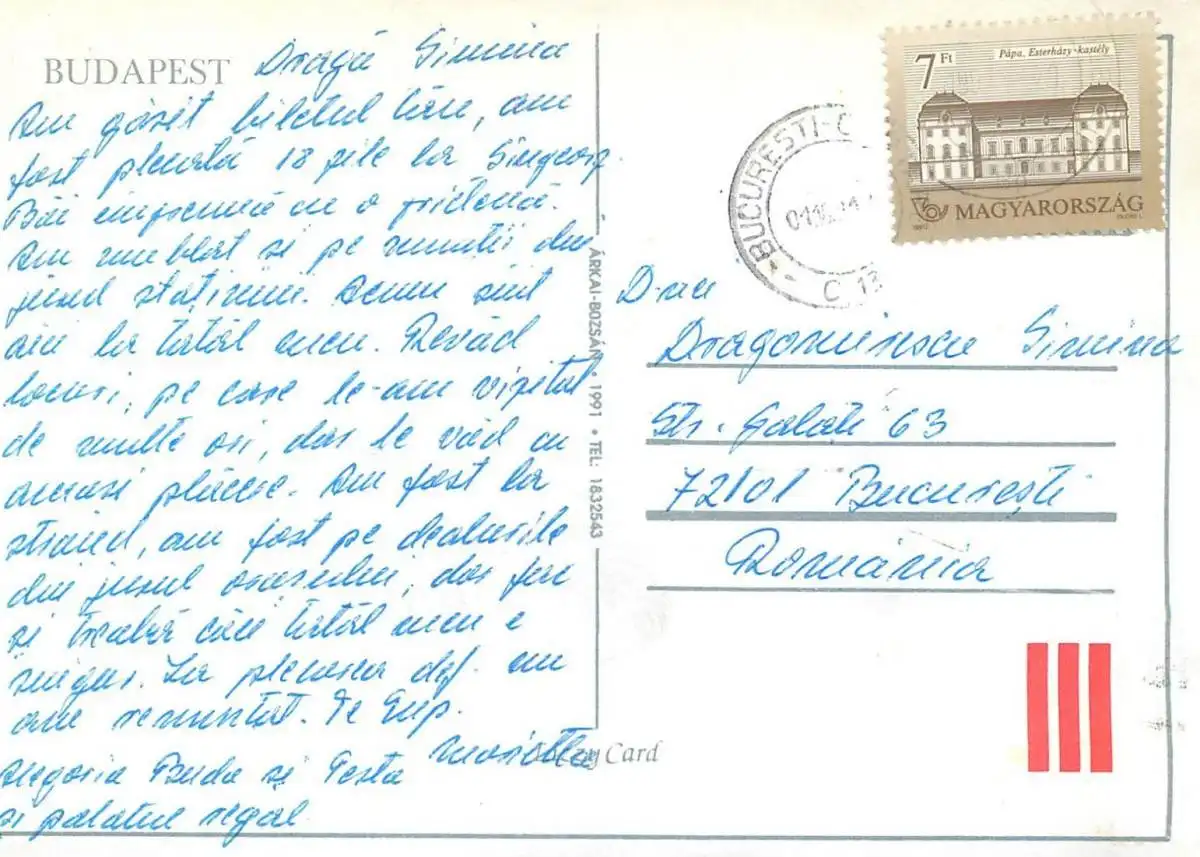 BUDAPEST
Dragă Simina
Am găsit biletul tău, am
fost plecată 18 zile la Sîngeorz
Băi împreună cu o prietenă.
Am umblat și pe munții din
jurul stațiunii. Acum sînt
aici la tatăl meu. Revăd
locuri, pe care le-am vizitat
de multe ori, dar le văd cu
aceeași plăcere. Am fost la
ștrand, am fost pe dealurile
din jurul orașului, dar fac
și treabă căci tatăl meu e
singur. La plecarea def. nu
am renunțat. Te pup.
Marietta
Alegoria Buda și Pesta
și palatul regal
ÁRKAI-BOZSÁN • 1991 • TEL: 1832543
Card
7 Ft
Pápa, Esterházy-kastély
MAGYARORSZÁG
BUCUREȘTI
C 13
D-nei
Dragomirescu Simina
Str. Galați 63
72101 București
România